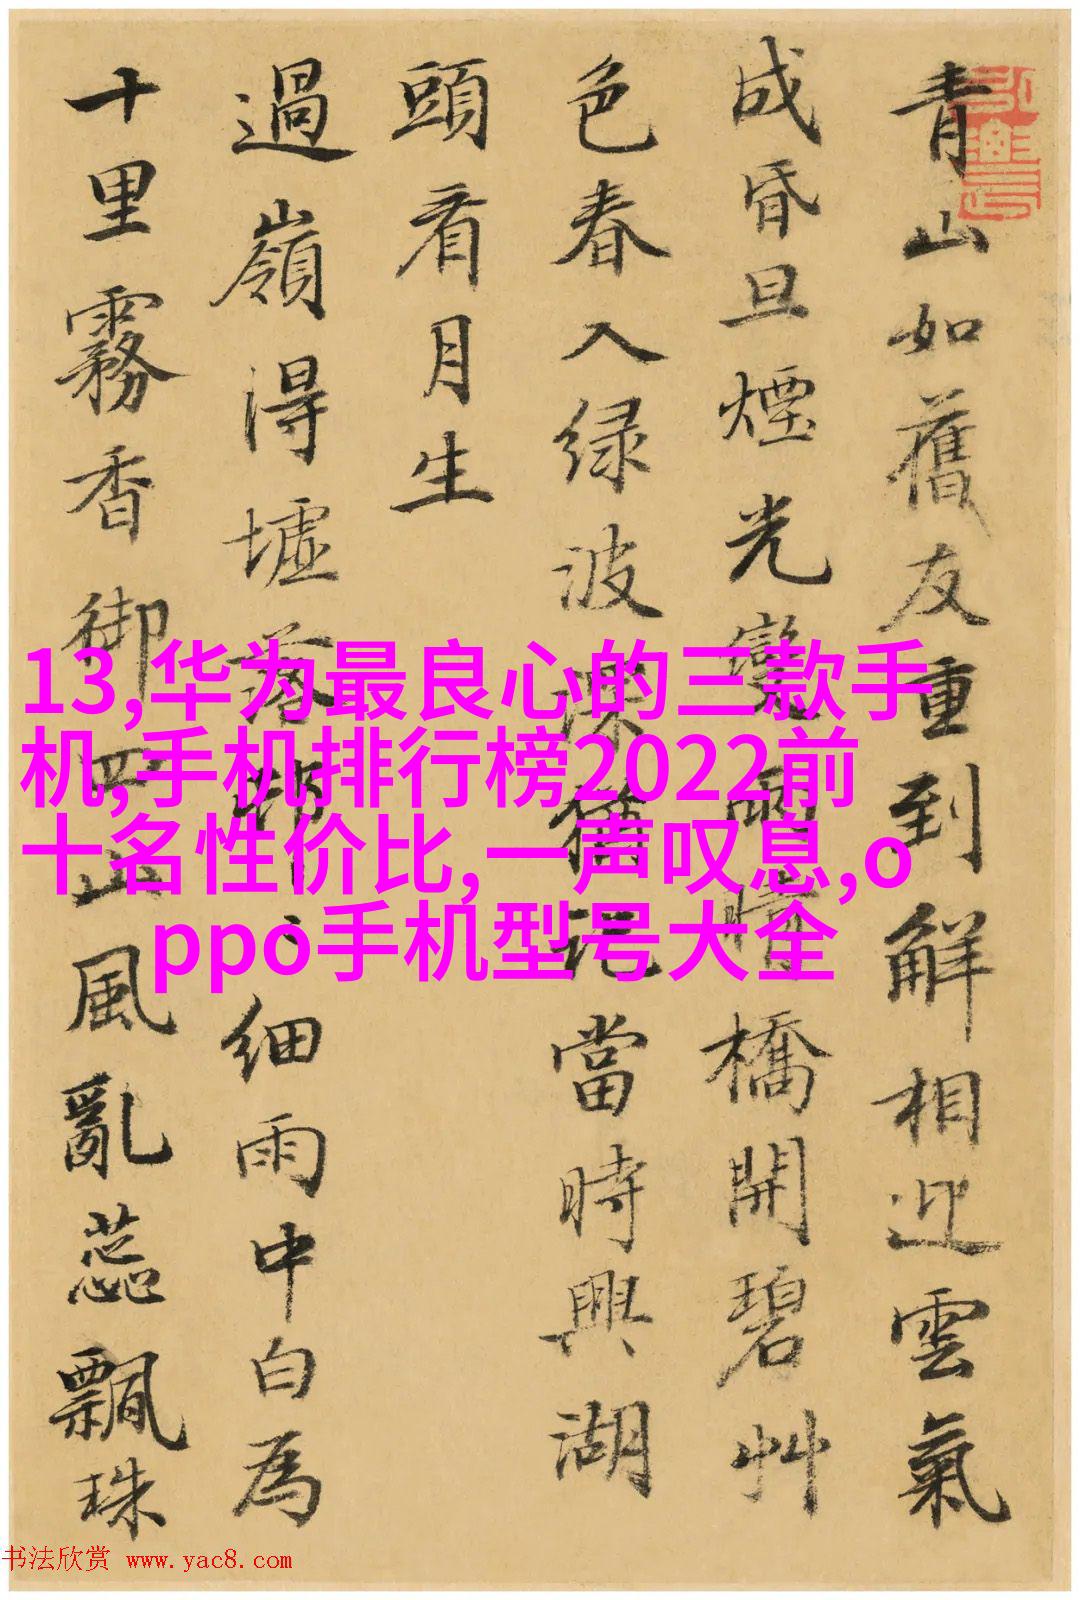 青山如舊友重到解相迎雲氣
成昏旦煙光變雨晴橋開碧艸
色春入绿波深猶記當時興湖
頭看月生
過嶺得墟落細雨中白為
十里霧香御四山風亂蕊飄珠
13,华为最良心的三款手
机,手机排行榜2022前
十名性价比,一声叹息,o
ppo手机型号大全
书法欣赏 www.yac8.com